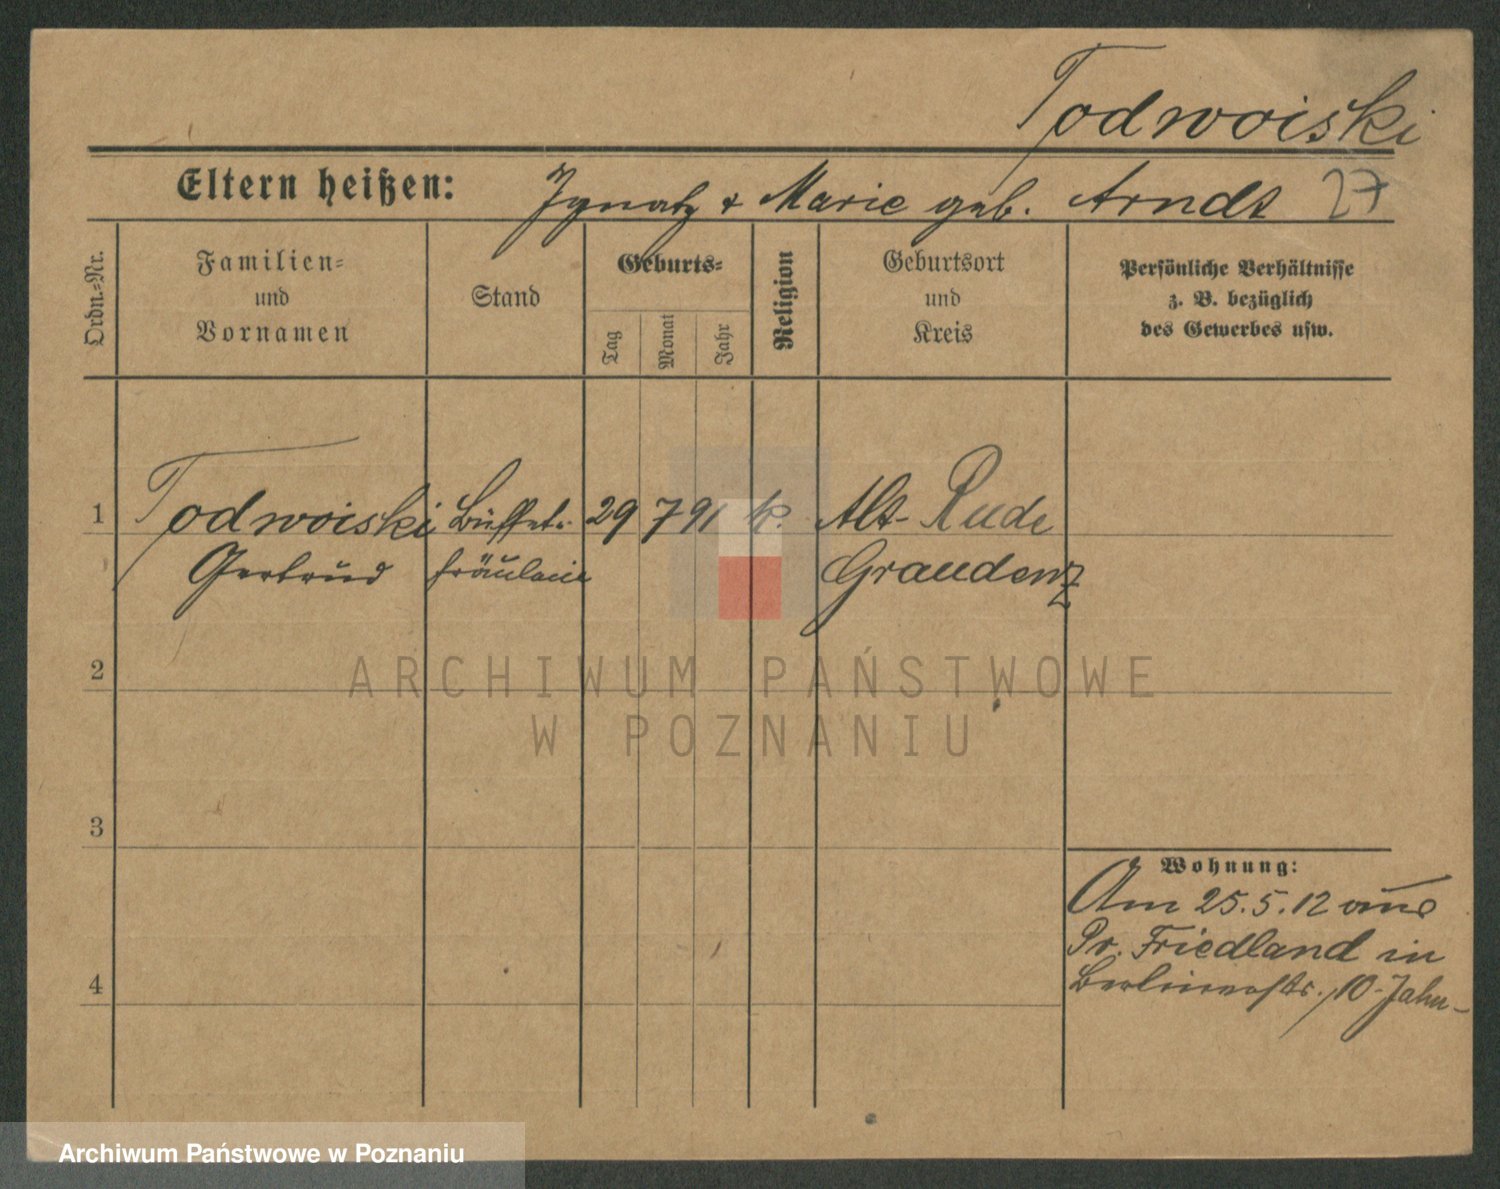 Todwoiski
Eltern heißen: Ignatz & Marie geb. Arndt 27
Ordn.-Nr.
Familien-
und
Vornamen
Stand
Geburts-
Tag
Monat
Jahr
Religion
Geburtsort
und
Kreis
Persönliche Verhältnisse
z. B. bezüglich
des Gewerbes usw.
1 Todwoiski Büffet- 29 7 91 k. Alt-Rude
Gertrud fräulein Graudenz
2
ARCHIWUM PAŃSTWOWE
W POZNANIU
3
Wohnung:
Am 25.5.12 aus
Pr. Friedland in
Berlinerstr. 10 - Jahn-
4
Archiwum Państwowe w Poznaniu